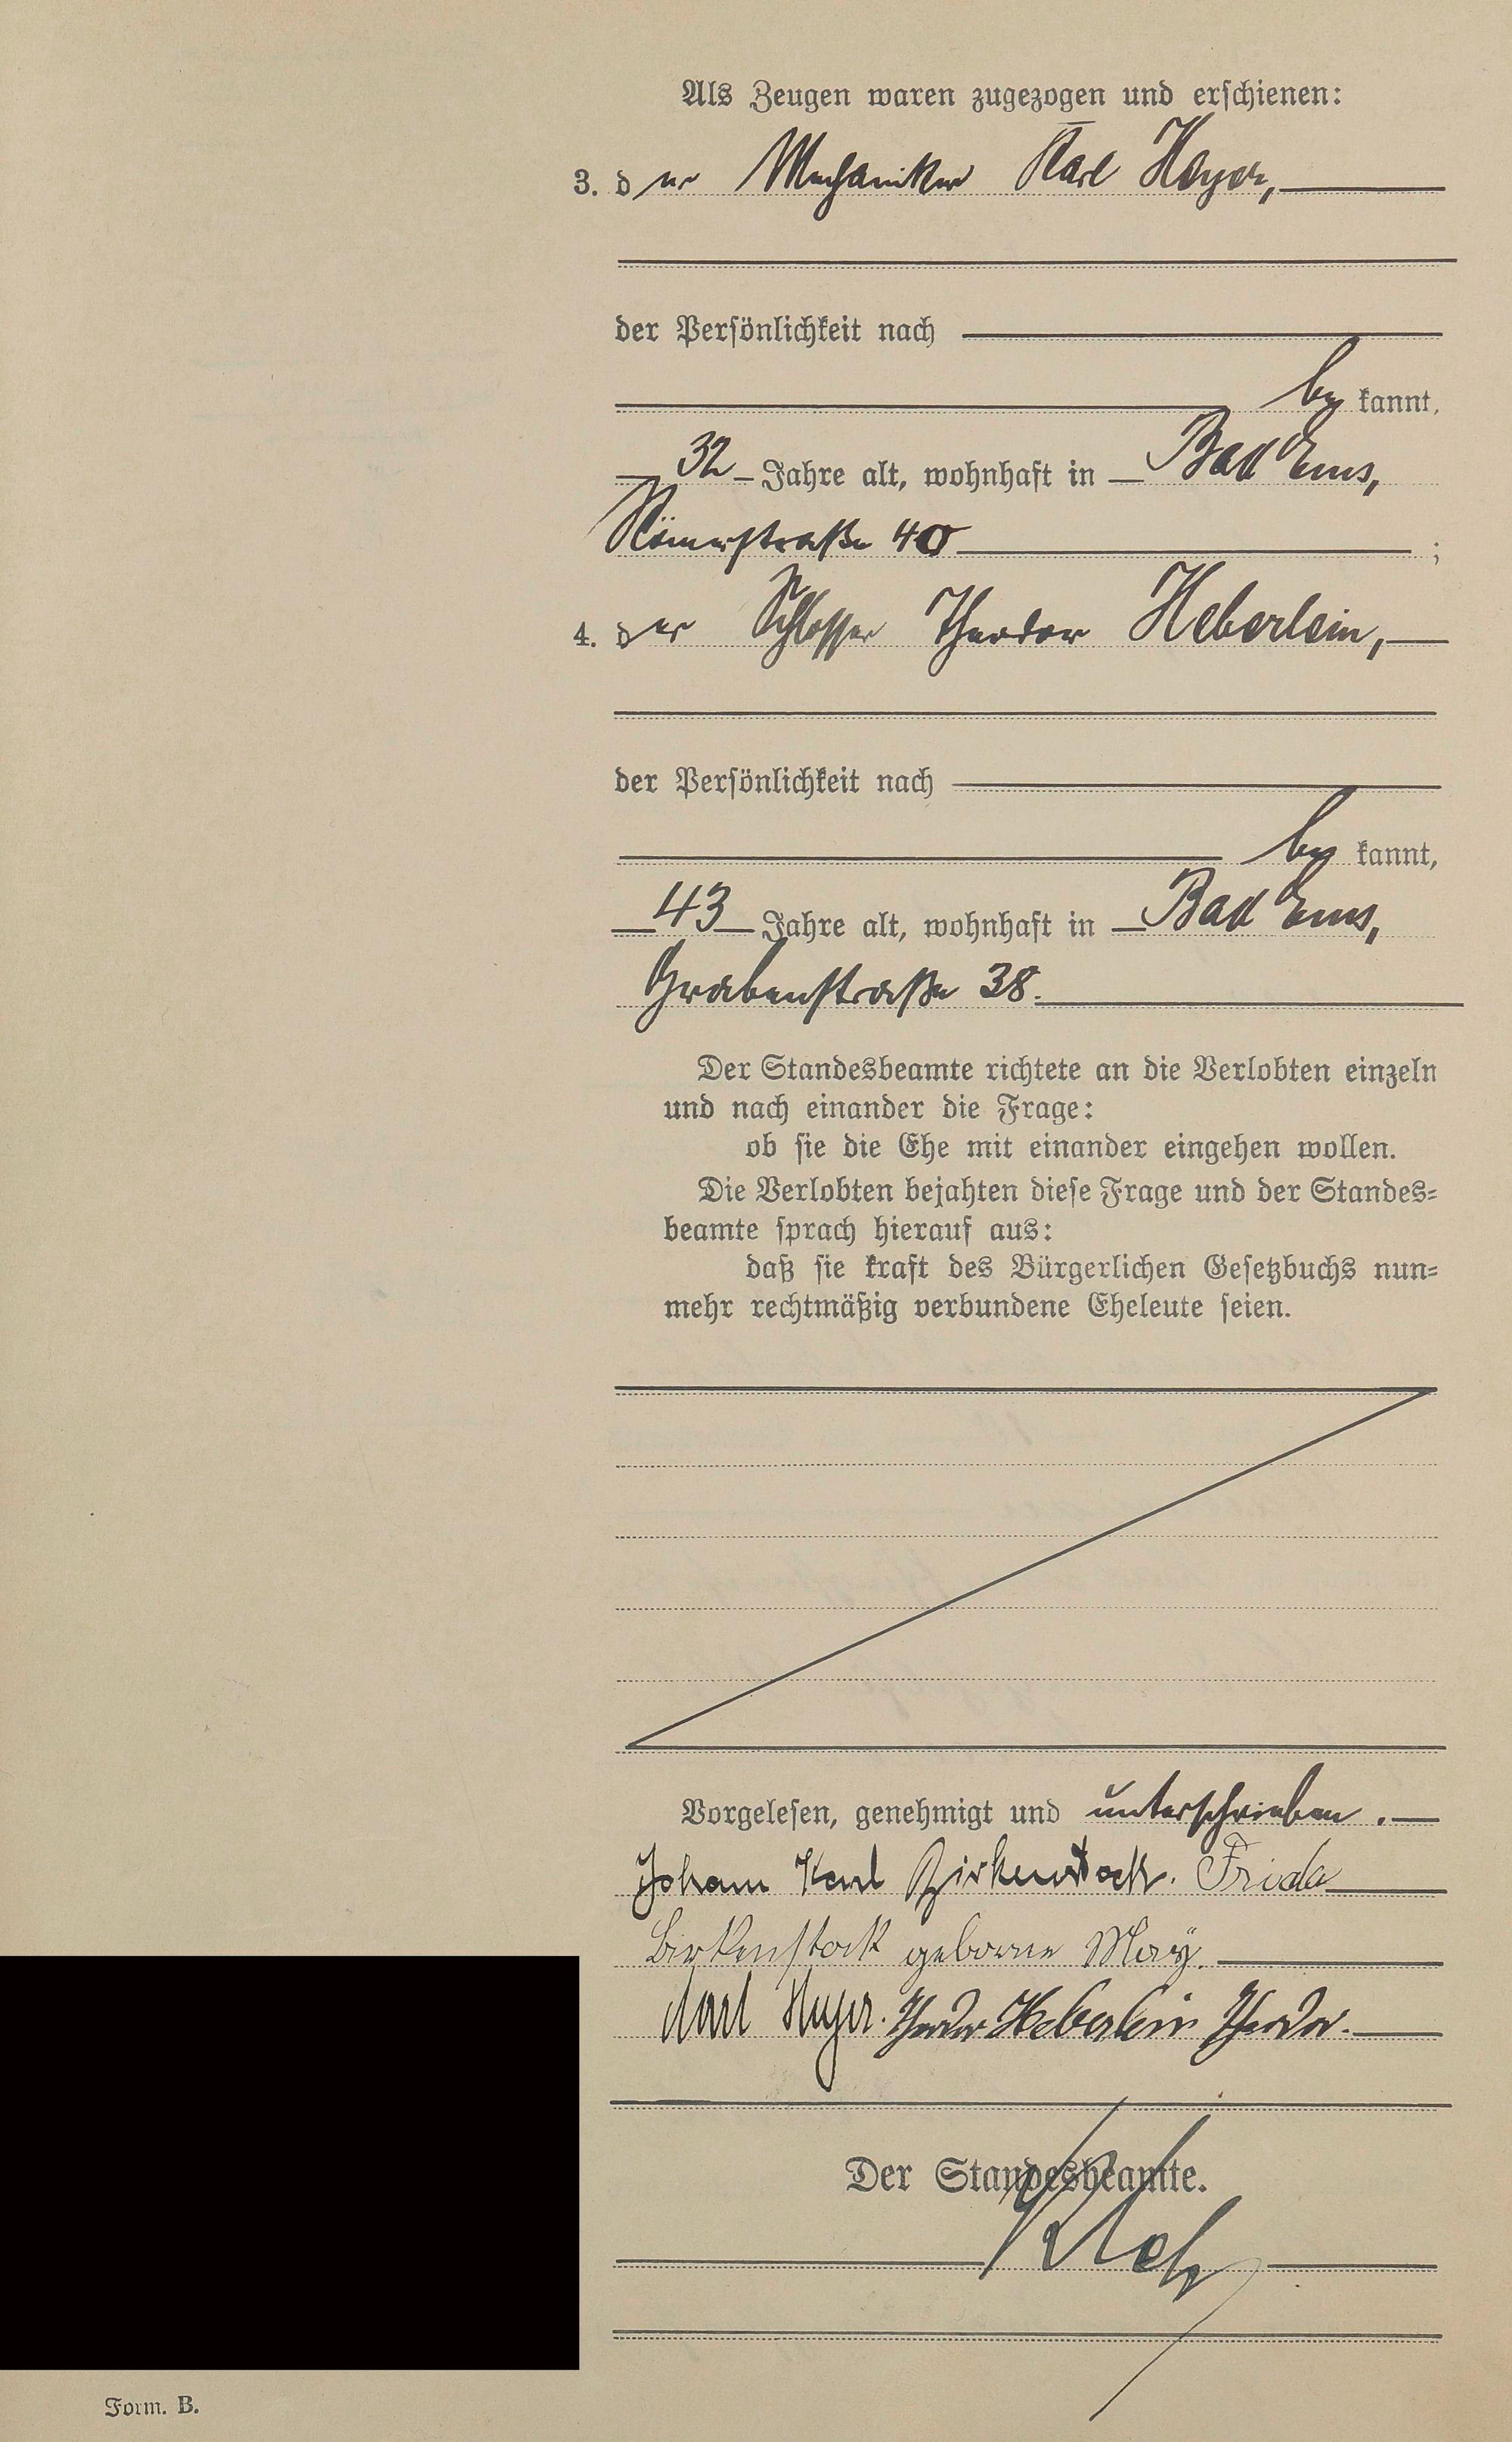 Als Zeugen waren zugezogen und erschienen:
3. der Mechaniker Karl Heyer,
der Persönlichkeit nach
be kannt,
32 Jahre alt, wohnhaft in Bad Ems,
Römerstraße 40 ;
4. der Schlosser Theodor Heberlein,
der Persönlichkeit nach
be kannt,
43 Jahre alt, wohnhaft in Bad Ems,
Grabenstraße 38.
Der Standesbeamte richtete an die Verlobten einzeln
und nach einander die Frage:
ob sie die Ehe mit einander eingehen wollen.
Die Verlobten bejahten diese Frage und der Standes=
beamte sprach hierauf aus:
daß sie kraft des Bürgerlichen Gesetzbuchs nun=
mehr rechtmäßig verbundene Eheleute seien.
Vorgelesen, genehmigt und unterschrieben.
Johann Karl Birkenstock. Frida
Birkenstock geborne May.
Karl Heyer. Theodor Heberlein Theodor.
Der Standesbeamte.
Form. B.